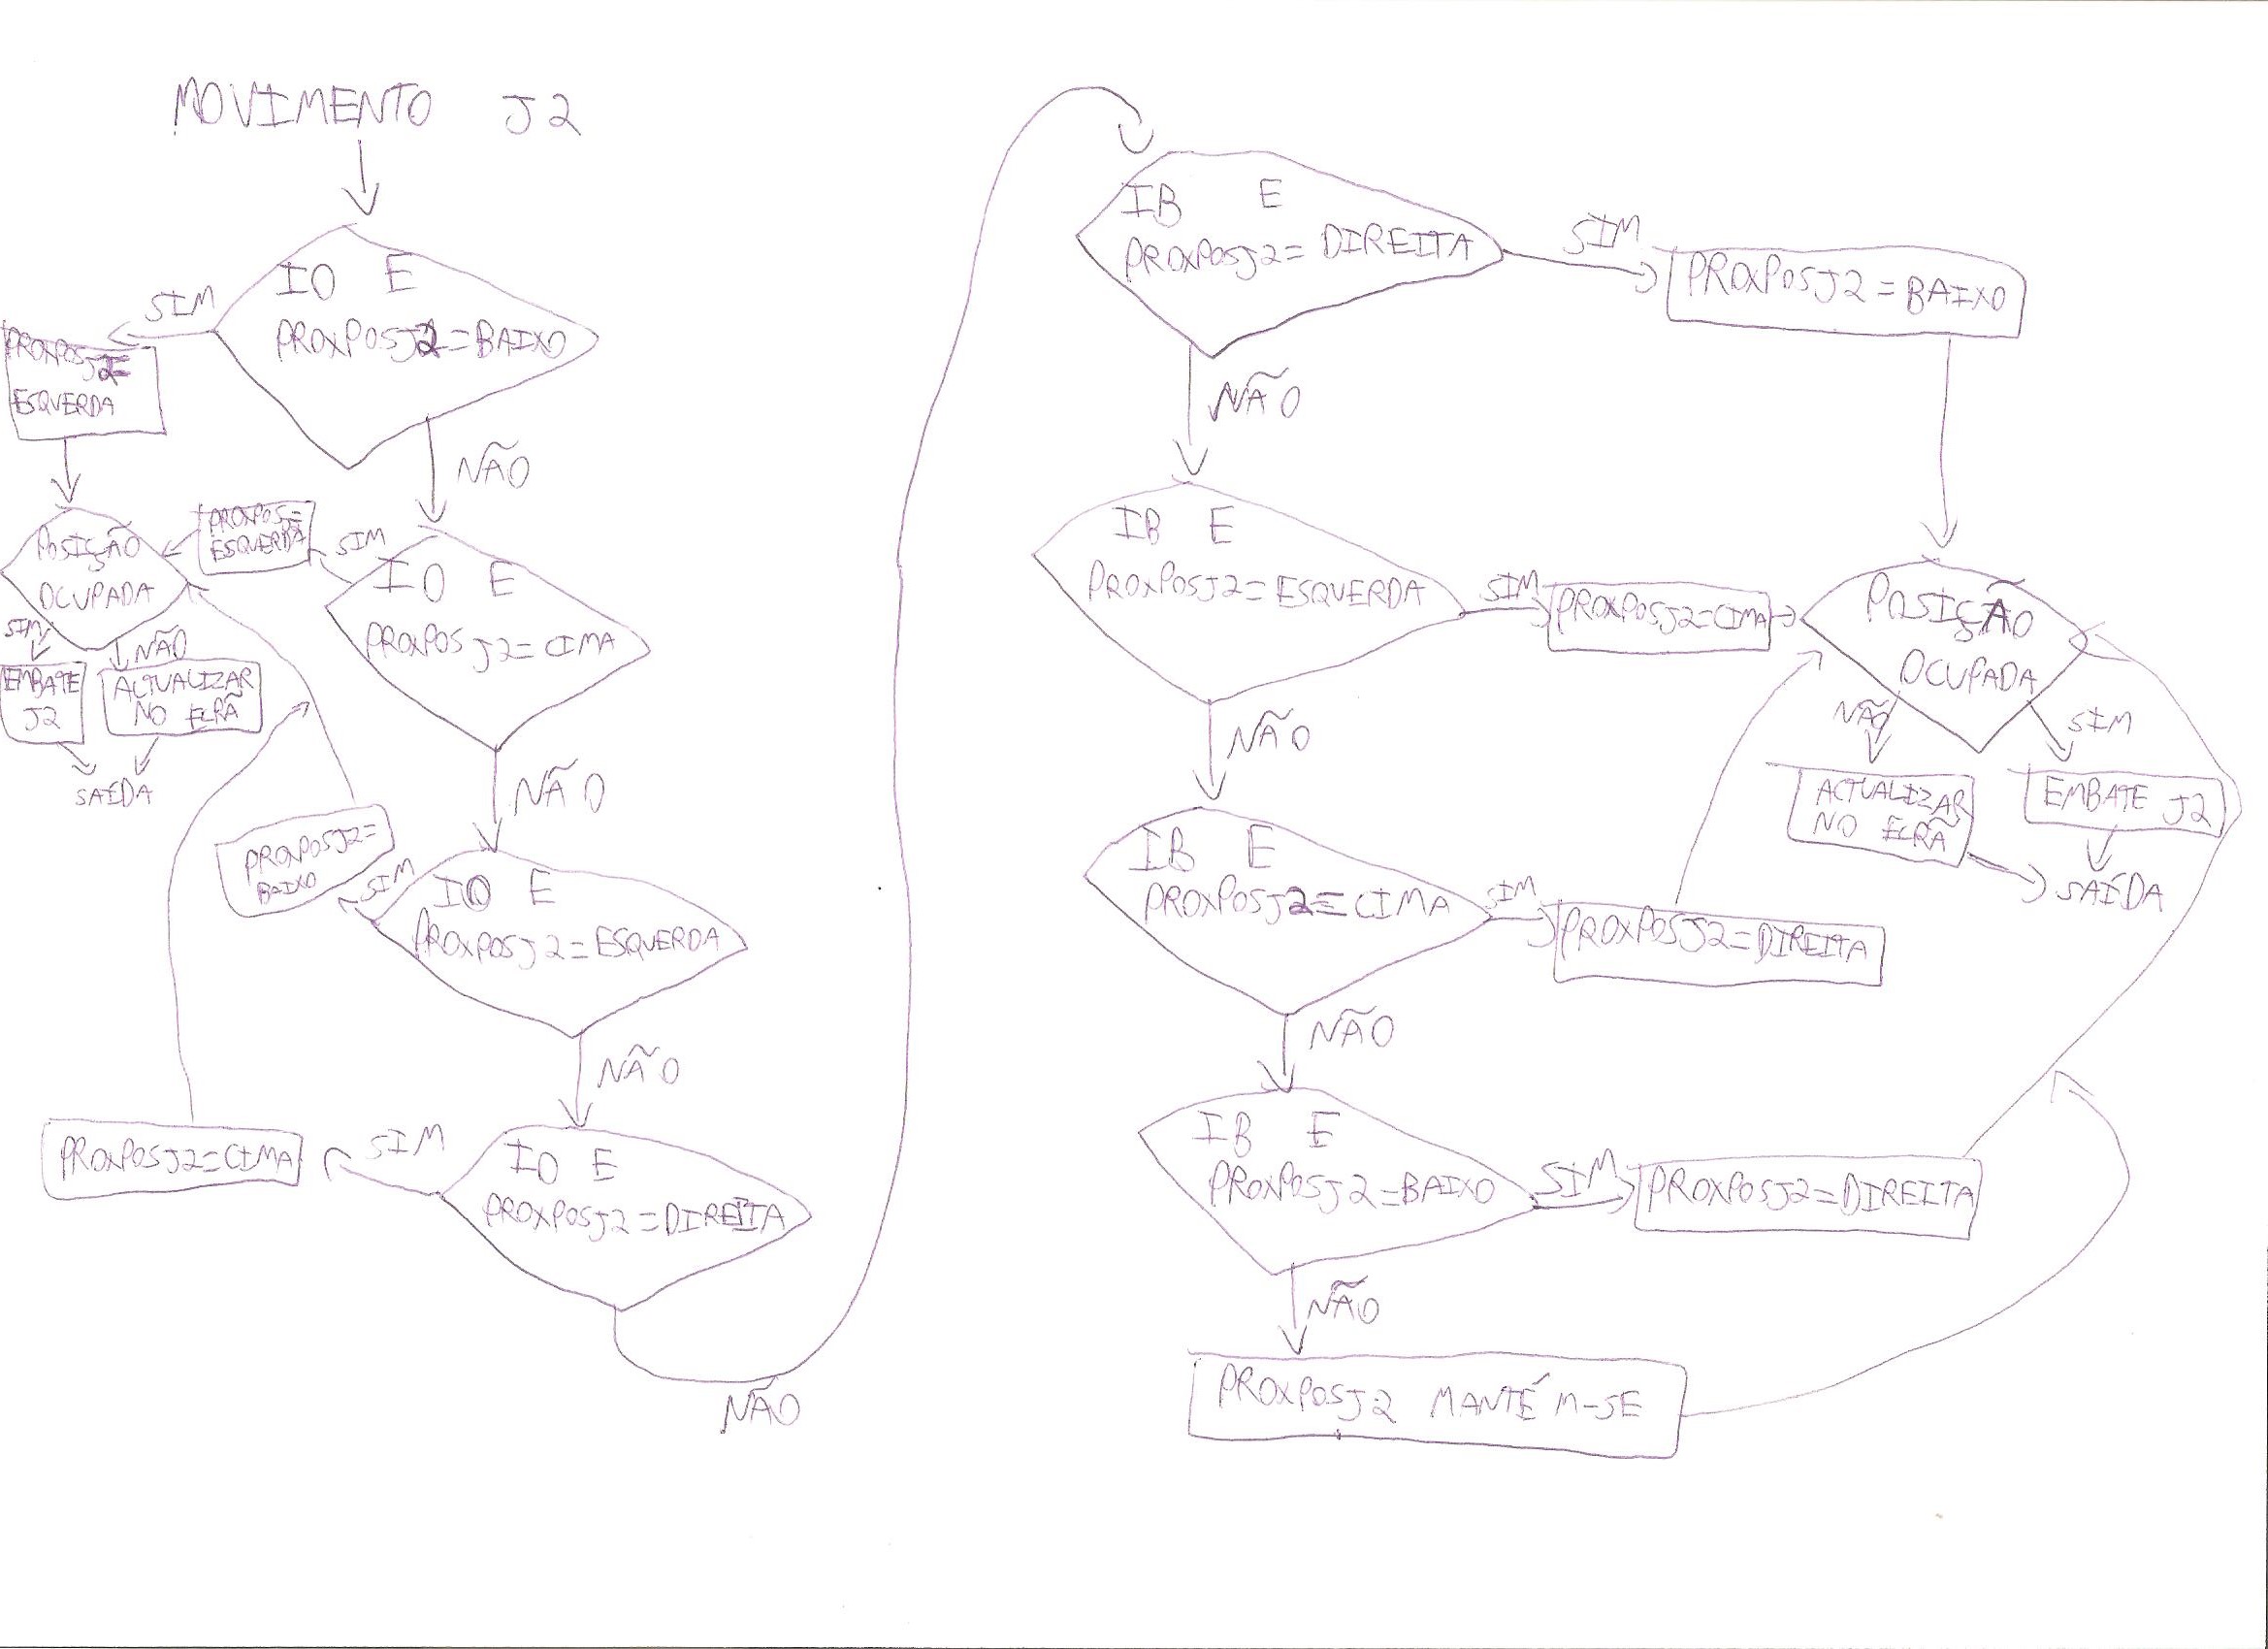 MOVIMENTO J2
IO E
PROXPOSJ2=BAIXO
SIM
PROXPOSJ2=
ESQUERDA
NÃO
POSIÇÃO
OCUPADA
SIM
EMBATE
J2
NÃO
ACTUALIZAR
NO ECRÃ
SAÍDA
PROXPOS=
J2
ESQUERDA
SIM
IO E
PROXPOSJ2=CIMA
NÃO
PROXPOSJ2=
BAIXO
SIM
IO E
PROXPOSJ2=ESQUERDA
NÃO
PROXPOSJ2=CIMA
SIM
IO E
PROXPOSJ2=DIREITA
NÃO
IB E
PROXPOSJ2=DIREITA
SIM
PROXPOSJ2=BAIXO
NÃO
IB E
PROXPOSJ2=ESQUERDA
SIM
PROXPOSJ2=CIMA
POSIÇÃO
OCUPADA
NÃO
ACTUALIZAR
NO ECRÃ
SIM
EMBATE J2
SAÍDA
NÃO
IB E
PROXPOSJ2=CIMA
SIM
PROXPOSJ2=DIREITA
NÃO
IB E
PROXPOSJ2=BAIXO
SIM
PROXPOSJ2=DIREITA
NÃO
PROXPOSJ2 MANTÉM-SE